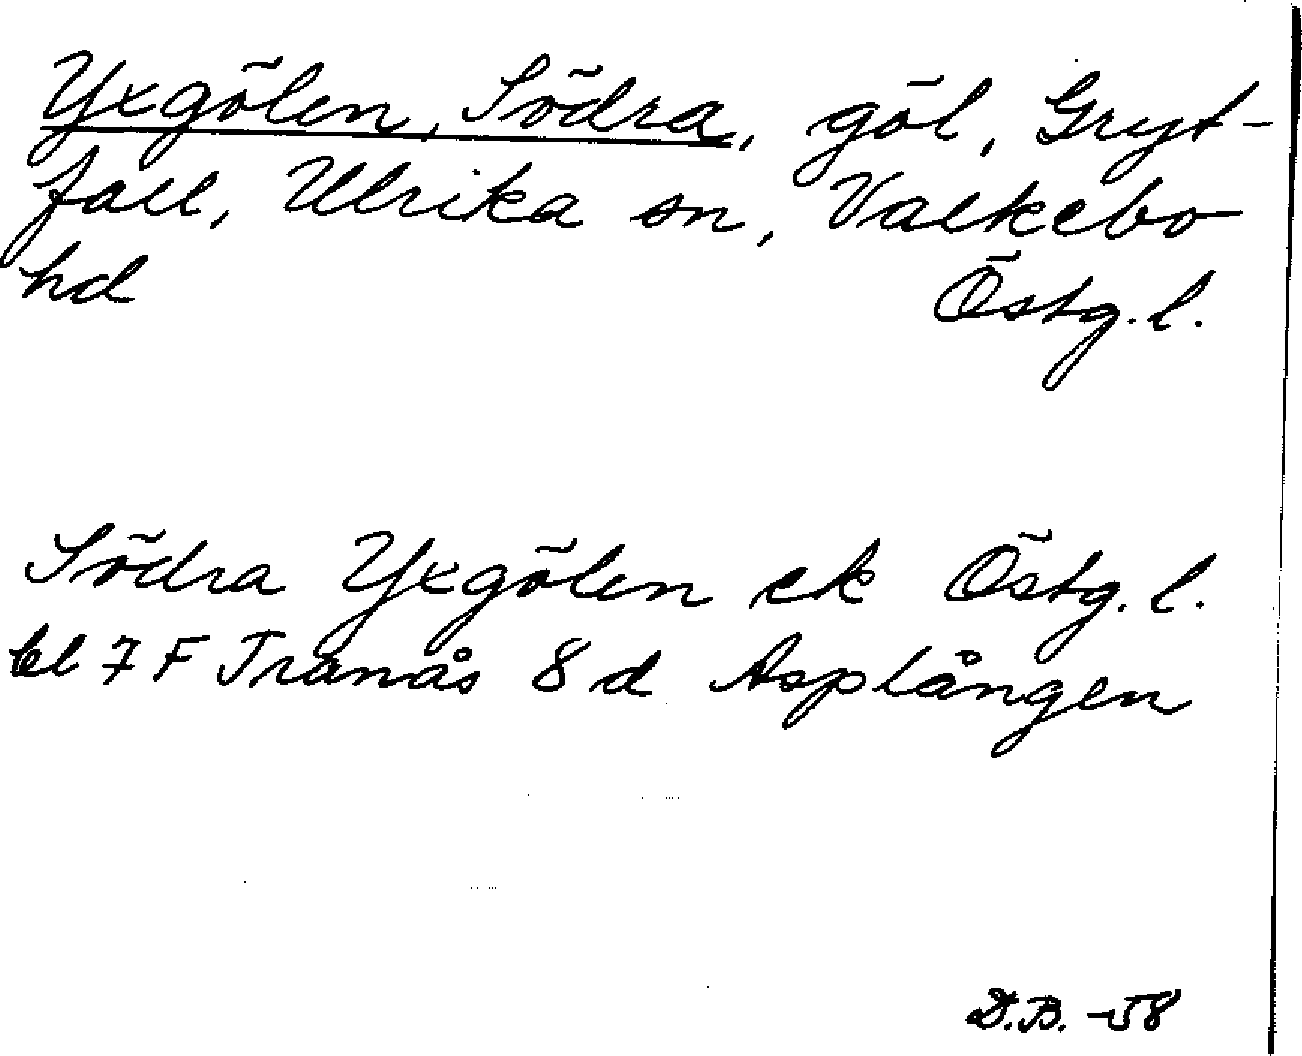 Yxgölen, Södra, göl, Gryt-
fall, Ulrika sn, Valkebo
hd Östg. l.
Södra Yxgölen ek Östg. l.
bl 7 F Tranås 8 d Asplången
D.B. -58